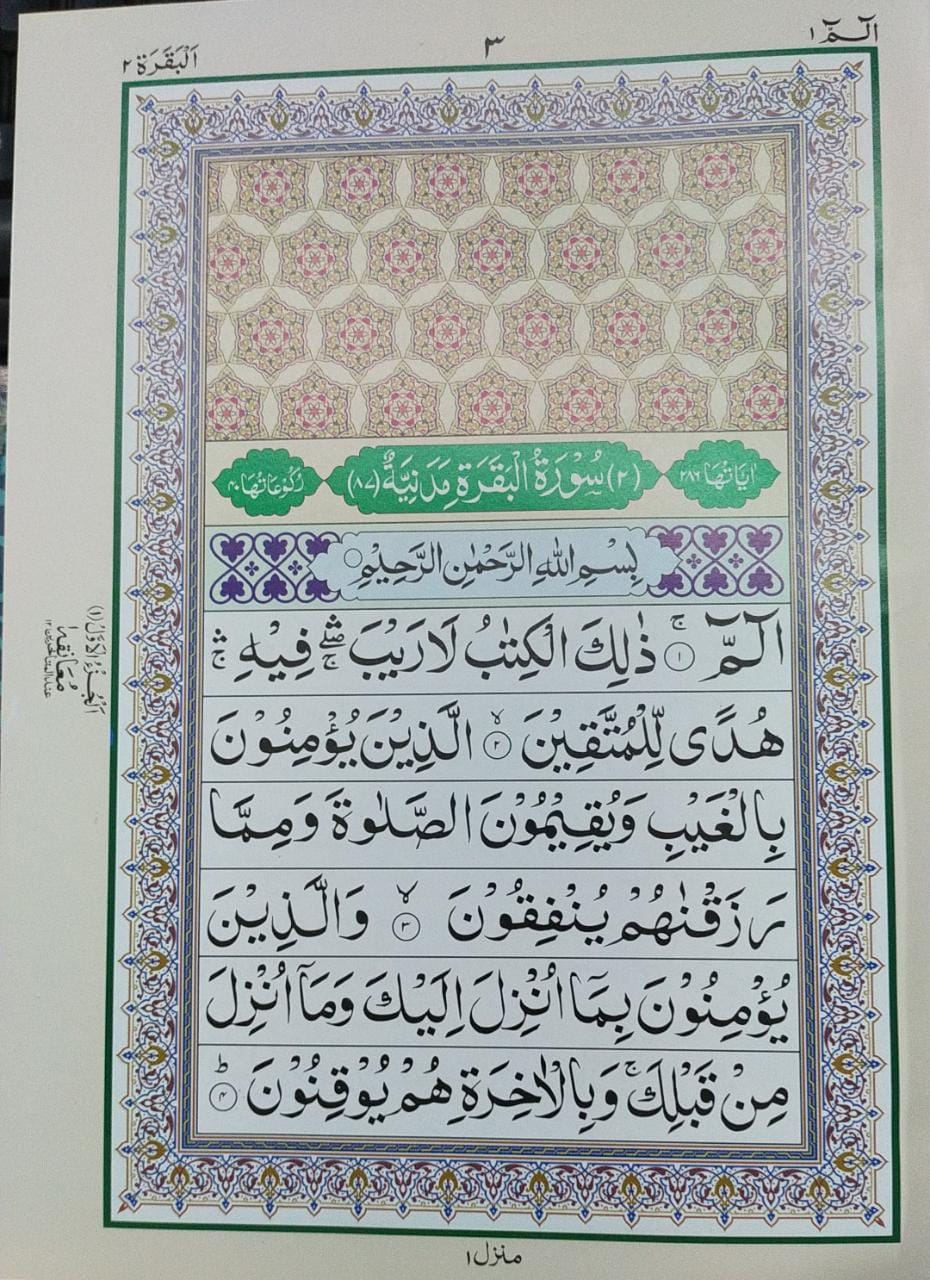 الٓمّٓ ١
٣
اَلْبَقَرَة ٢
اٰیَاتُهَا ٢٨٦
(٢) سُوْرَةُ الْبَقَرَةِ مَدَنِيَّةٌ (٨٧)
رُكُوْعَاتُهَا ٤٠
بِسْمِ اللهِ الرَّحْمٰنِ الرَّحِيْمِ
الٓمّٓ ۚ ﴿١﴾ ذٰلِكَ الْكِتٰبُ لَا رَيْبَ ۛۖۚ فِيْهِ ۛۚ
هُدًى لِّلْمُتَّقِيْنَ ۙ ﴿٢﴾ الَّذِيْنَ يُؤْمِنُوْنَ
بِالْغَيْبِ وَيُقِيْمُوْنَ الصَّلٰوةَ وَمِمَّا
رَزَقْنٰهُمْ يُنْفِقُوْنَ ۙ ﴿٣﴾ وَالَّذِيْنَ
يُؤْمِنُوْنَ بِمَآ اُنْزِلَ اِلَيْكَ وَمَآ اُنْزِلَ
مِنْ قَبْلِكَ ۚ وَبِالْاٰخِرَةِ هُمْ يُوْقِنُوْنَ ؕ ﴿٤﴾
اَلْجُزْءُ الْاَوَّلُ (١)
معانقہ ١
منزل ١